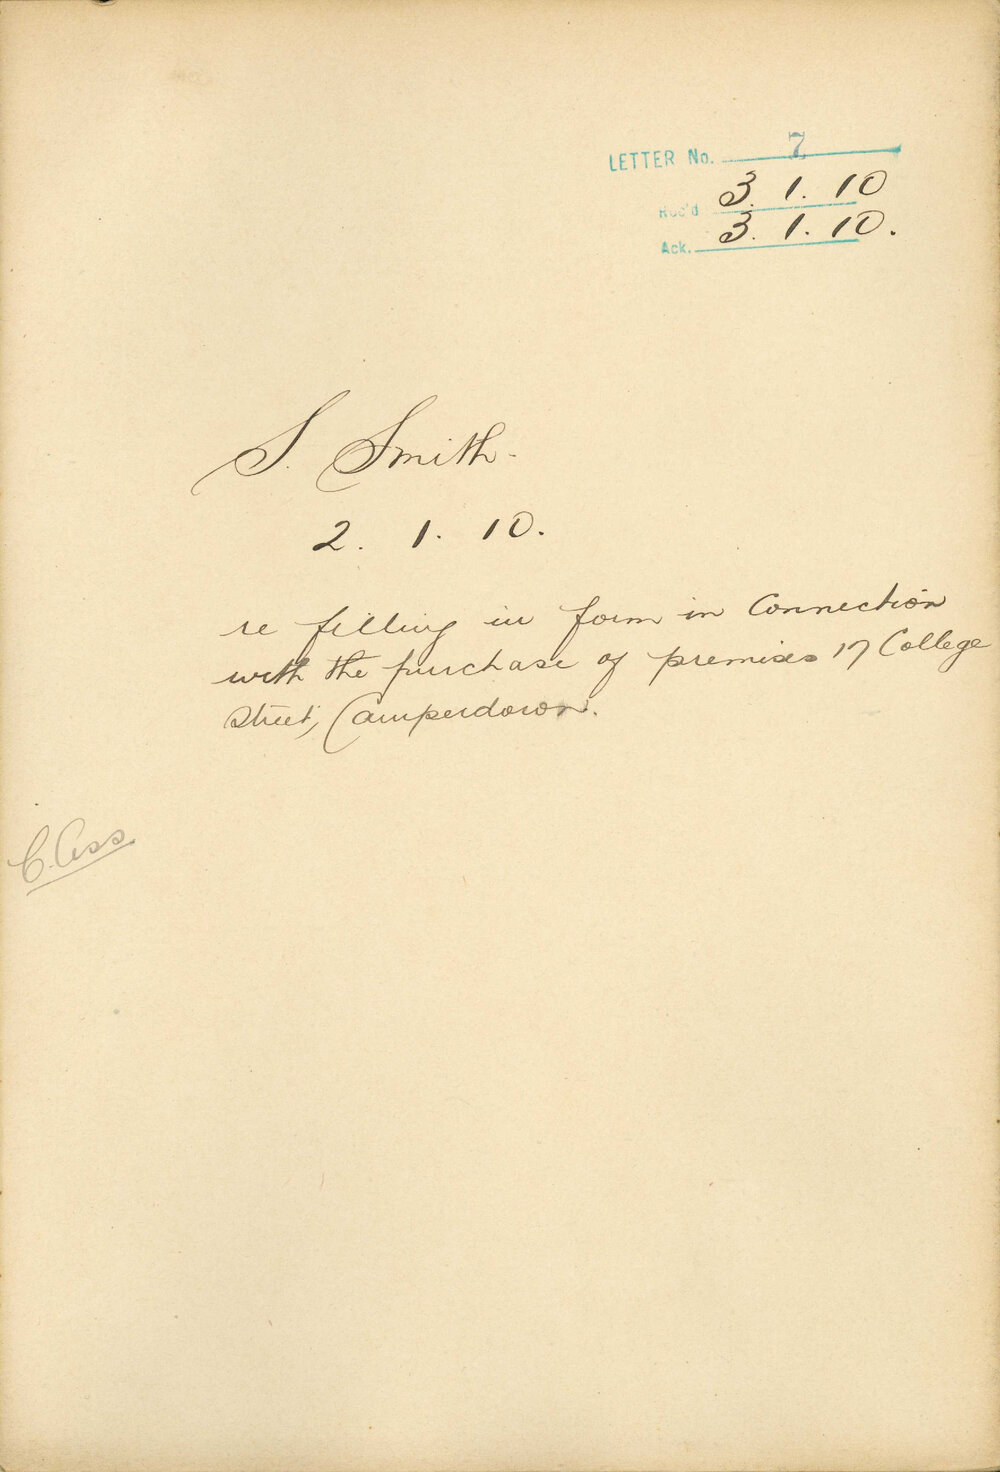 LETTER No. 7
Rec'd 3. 1. 10
Ack. 3. 1. 10.
S. Smith.
2. 1. 10.
re filling in form in Connection
with the purchase of premises 17 College
Street, Camperdown.
C. Ass